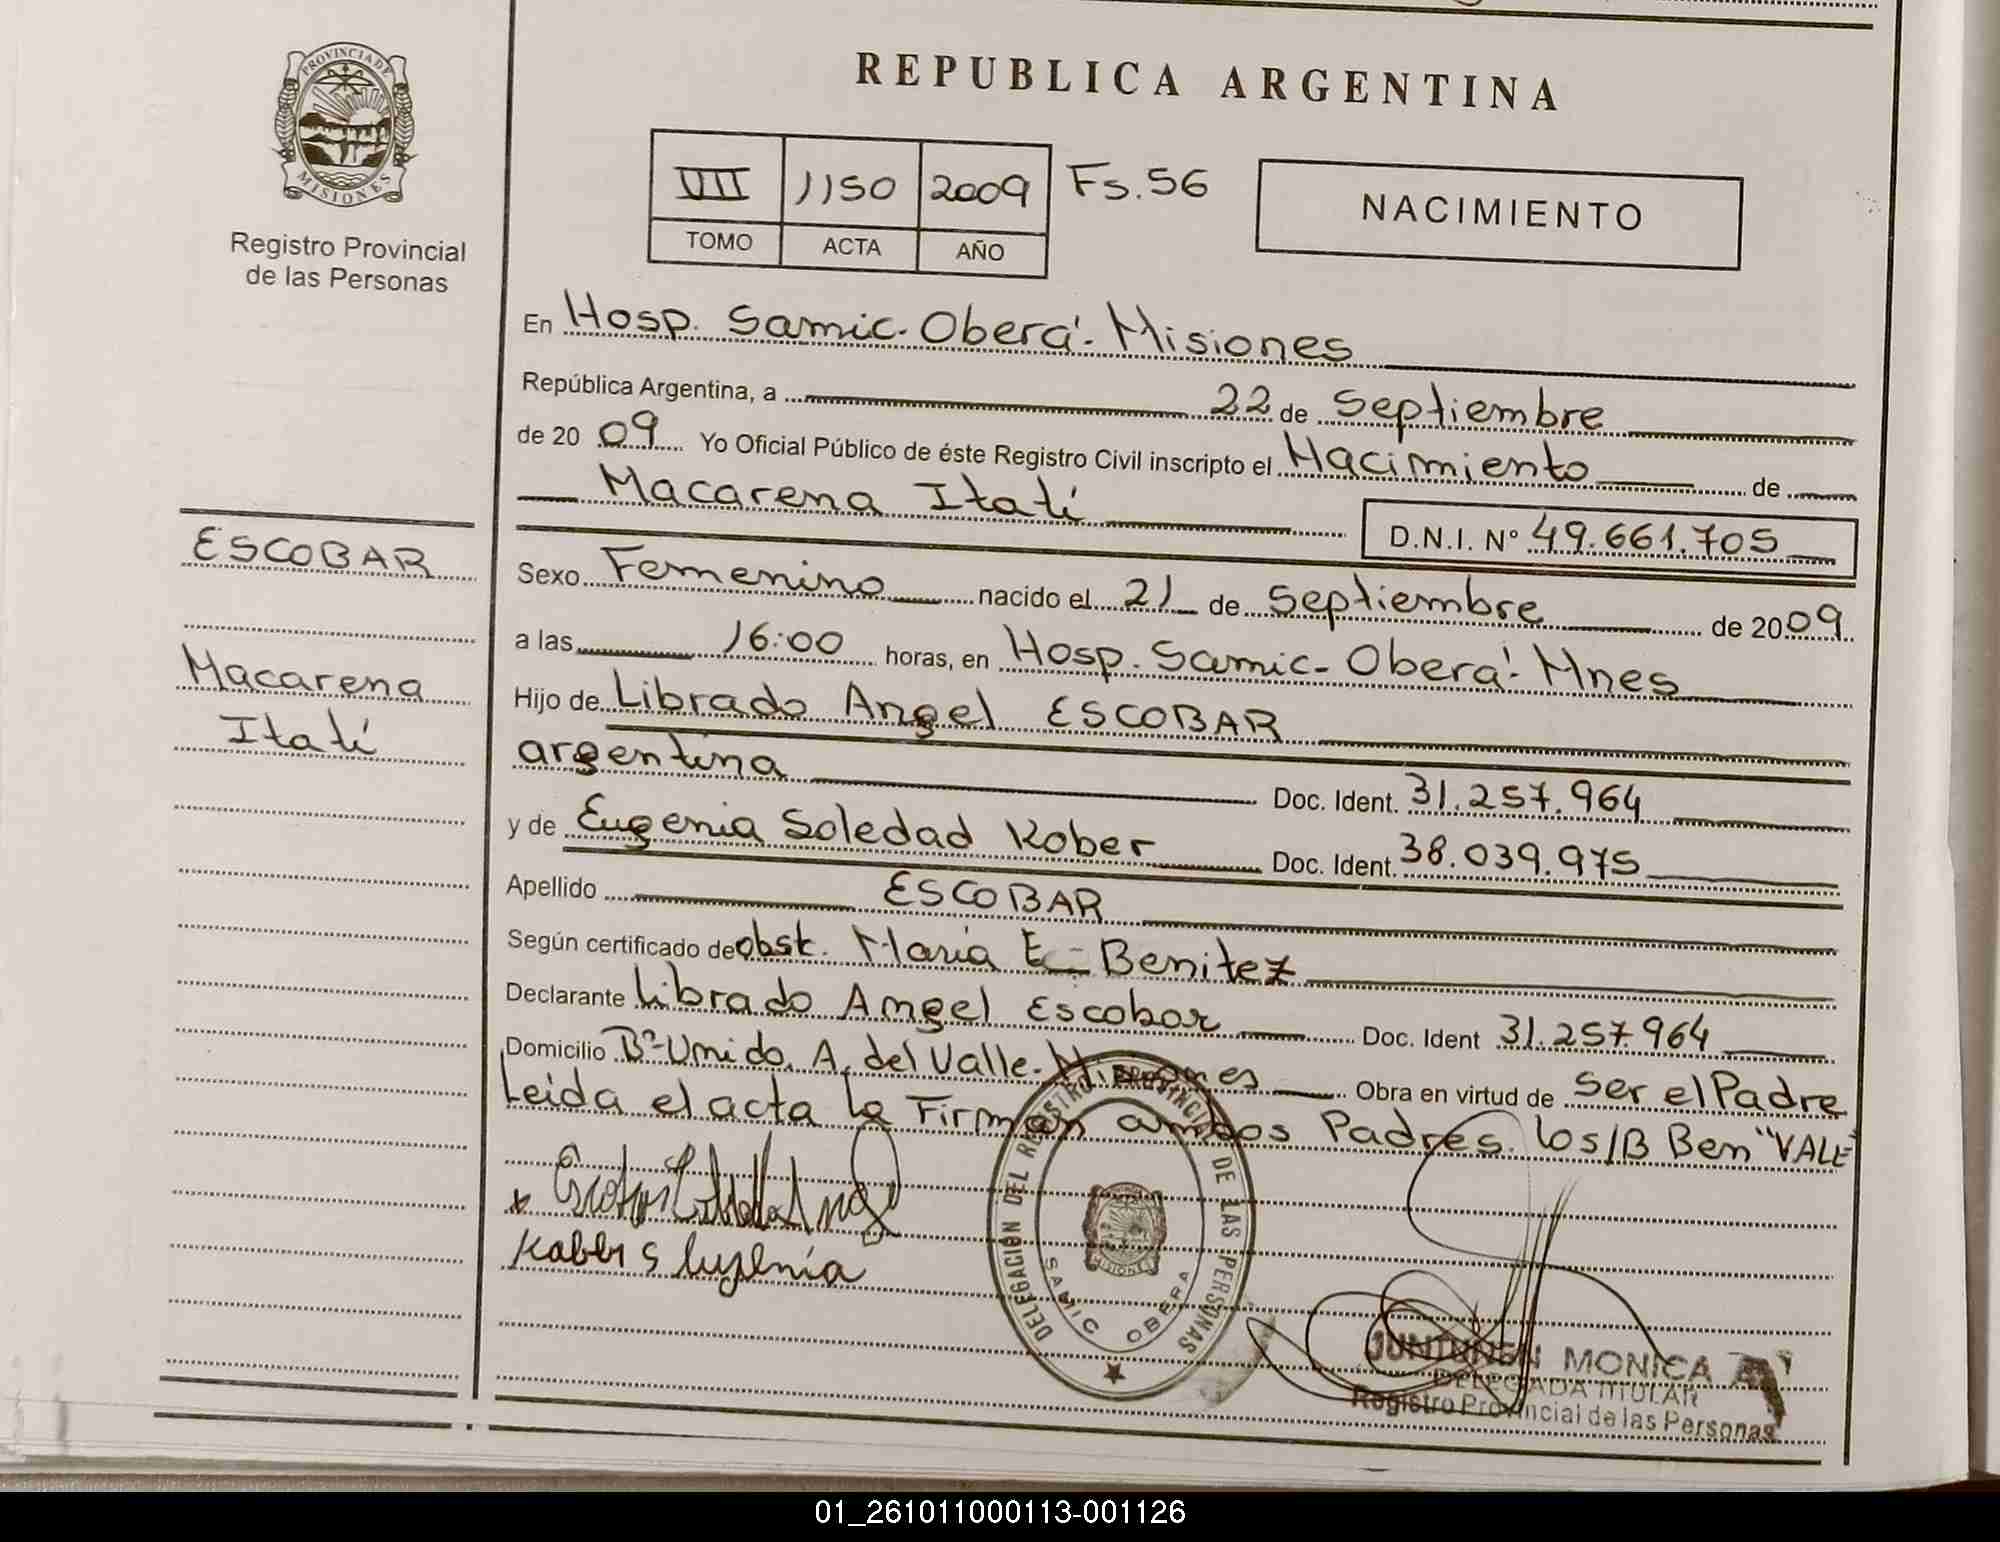 PROVINCIA DE
MISIONES
Registro Provincial
de las Personas
REPUBLICA ARGENTINA
VII 1150 2009 Fs. 56
TOMO ACTA AÑO
NACIMIENTO
En Hosp. Samic. Oberá. Misiones
República Argentina, a 22 de Septiembre
de 20 09 Yo Oficial Público de éste Registro Civil inscripto el Nacimiento de
Macarena Itatí
D.N.I. N° 49.661.705
ESCOBAR
Macarena
Itatí
Sexo Femenino nacido el 21 de Septiembre de 2009
a las 16:00 horas, en Hosp. Samic- Oberá. Mnes
Hijo de Librado Angel ESCOBAR
argentina Doc. Ident. 31.257.964
y de Eugenia Soledad Kober Doc. Ident. 38.039.975
Apellido ESCOBAR
Según certificado de obst. María E- Benitez
Declarante Librado Angel Escobar Doc. Ident 31.257.964
Domicilio B° Unido. A. del Valle. Misiones Obra en virtud de Ser el Padre
Leida el acta la Firman ambos Padres. los/B Ben "VALE"
DELEGACION DEL REGISTRO PROVINCIAL DE LAS PERSONAS
MISIONES
SAMIC OBERA
JUNTUNEN MONICA
DELEGADA TITULAR
Registro Provincial de las Personas
01_261011000113-001126